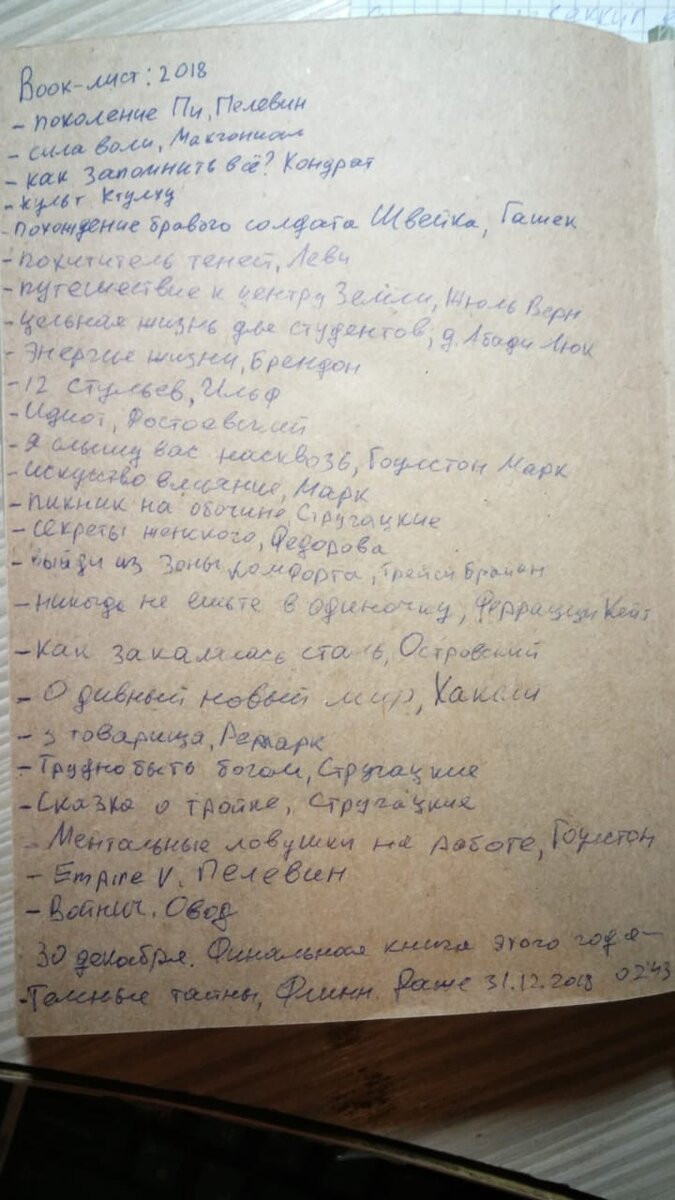 саккип
Воок-лист: 2018
- поколение Пи, Пелевин
- сила воли, Макгонигал
- как запомнить всё? Кондрат
- культ Ктулху
- похождение бравого солдата Швейка, Гашек
- похититель теней, Леви
- путешествие к центру Земли, Жюль Верн
- цельная жизнь две студентов, д. Абади Люк
- Энергие жизни, Брендон
- 12 стульев, Ильф
- Идиот, Достоевский
- Я слышу вас насквозь, Гоулстон Марк
- искусство влияние, Марк
- пикник на обочине Стругацкие
- секреты женского, Федорова
- выйди из зоны комфорта, Трейси Брайан
- никогда не ешьте в одиночку, Феррацци Кейт
- как закалялась сталь, Островский
- О дивный новый мир, Хаксли
- 3 товарища, Ремарк
- Трудно быть богом, Стругацкие
- Сказка о тройке, Стругацкие
- Ментальные ловушки на работе, Гоулстон
- Empire V. Пелевин
- Войнич. Овод
30 декабря. Финальная книга этого года -
- Темные тайны, Флинн. Даже 31.12.2018 02:43